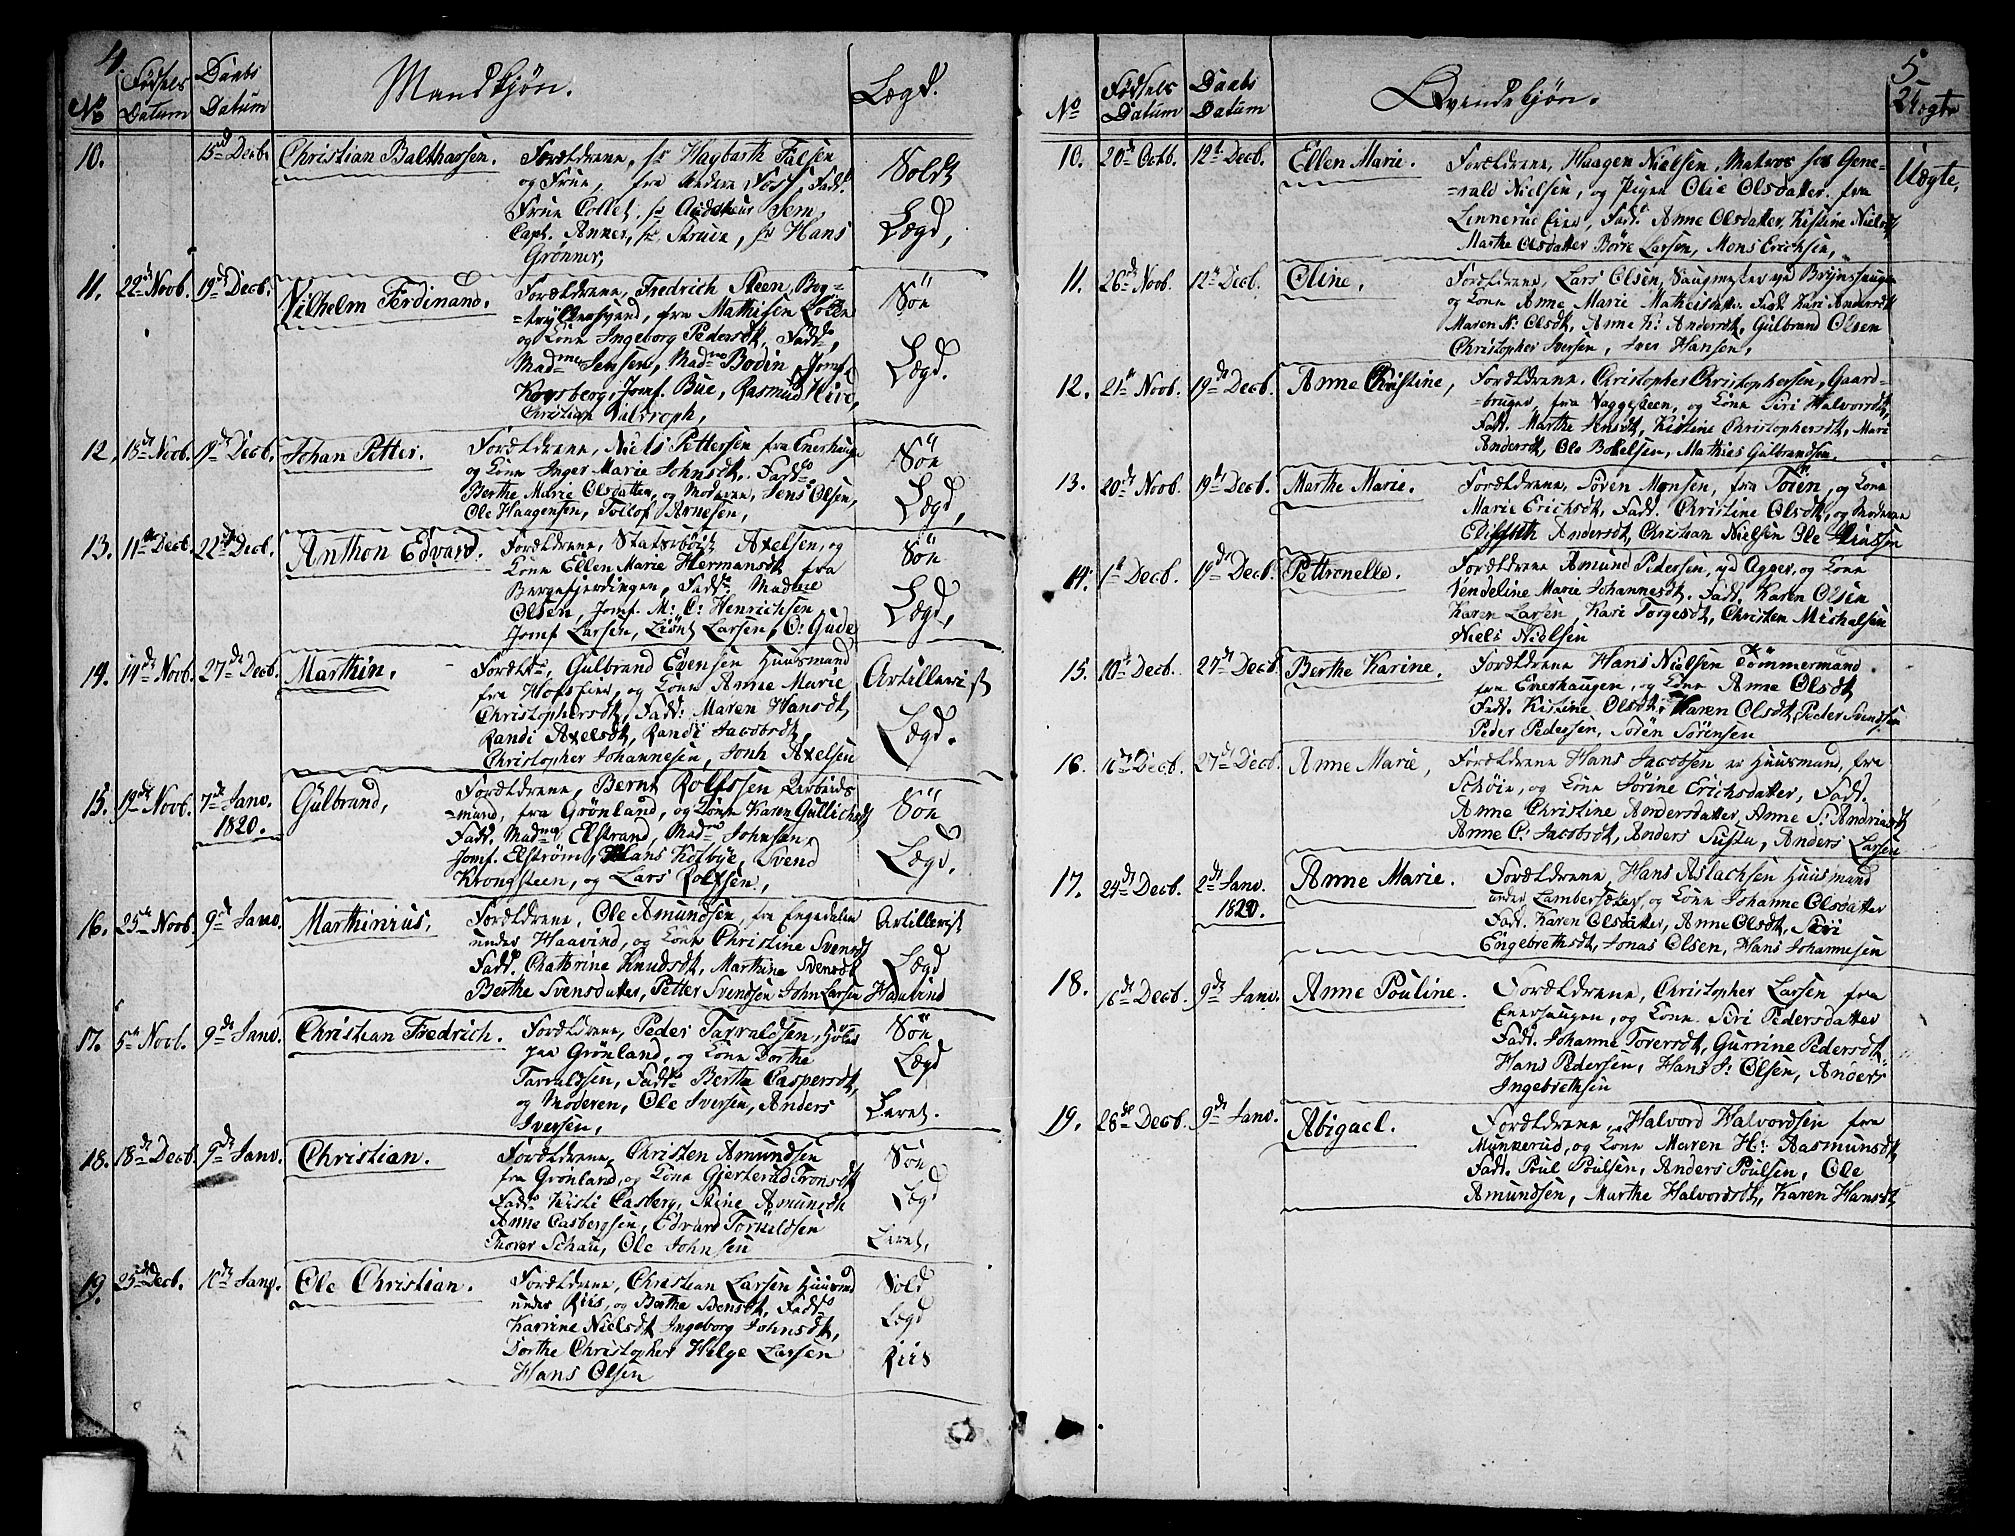 4.
No Fødsels Datum Daabs Datum Mandkjøn. Lægd.
10. 15d Decb. Christian Balthassen. Forældrene, Hr Hagbarth Falsen Soldt
og Frue, fra Andere Foss, Fadd.
Frue Collet, Hr Sem, Lægd,
Capt. Anner, Hr Struin, Hr Hans
Grønner,
11. 22de Novb. 19de Decb. Vilhelm Ferdinand. Forældrene, Fredrich Steen, Bog-
=tryckersvend, fra Mathisen Løkke Søe
og Kone Ingeborg Pedersdt, Fadd.
Madme Jensen, Madme Bodin, Jomf. Lægd.
Kogsberg, Jomf. Bue, Rasmus Hive,
Christian Valstroph,
12, 18de Novb. 19de Decb. Johan Petter. Forældrene, Niels Pettersen fra Enerhauge Søe
og Kone Inger Marie Johnsdt. Fadd.
Berthe Marie Olsdatter, og Moderen, Jens Olsen, Lægd,
Ole Haagensen, Tollof Arnesen,
13. 11te Decb. 22de Decb. Anthon Edvard. Forældrene, Axelsen, og Søe
Kone Ellen Marie Hermansdt fra
Bergefjerdingen, Fadd. Madme Lægd,
Olsen, Jomf. M: C: Henrichsen
Jomf Larsen, Larsen, O: Gude
14. 14de Novb. 27de Decb. Marthin. Foræld. Gulbrand Evensen Huusmand Artillerist
fra Hofseier, og Kone Anne Marie
Christophersdt, Fadd: Maren Hansdt, Lægd.
Randi Axelsdt, Randi Jacobsdt,
Christopher Johannesen, Jonh Axelsen
15. 19de Novb. 7de Janv. 1820. Gulbrand, Forældrene, Bernt Rolfssen Arbeids Søe
=mand, fra Grønland, og Kone Karen Gullichsdt
Fadd. Madme Elstrand, Madme Johnsen, Lægd,
Jomf. Elstrøm, Hans Kolbye, Svend
Krongsteen, og Lars Rolfsen,
16. 25de Novb. 9de Janv. Marthinius. Forældrene, Ole Amundsen, fra Engedalen Artillerist
under Haavind, og Kone Christine Svensdt Lægd
Fadd. Chatbrine Knudsdt, Marthine Svensdt
Berthe Svensdatter, Petter Svendsen John Larsen Haavind
17. 5te Novb. 9de Janv. Christian Fredrich. Forældrene, Peder Tarraldsen, Søe
paa Grønland, og Kone Dorthe Lægd
Tarraldsen, Fadd. Berthe Caspersdt, Leret.
og Moderen, Ole Iversen, Anders
Iversen,
18. 18de Decb. 9de Janv. Christian. Forældrene, Christen Amundsen Søe
fra Grønland, og Kone Gjertrud Tronsdt Lægd
Fadd. Kisti Casberg, Stine Amundsdt
Anne Casbergsen, Edvard Tornildsen
Thorer Schau, Ole Johnsen Leret,
19. 25de Decb. 10de Janv. Ole Christian. Forældrene, Christian Larsen Huusmd Sold
under Riis, og Berthe Bensdt, Fadd. Lægd
Karrine Nielsdt Ingeborg Johnsdt, Riis
Dorthe Christopher Helge Larsen
Hans Olsen
5
No Fødsels Datum Daabs Datum Qvendekjøn. Uægte
10. 20de Octb. 12te Decb. Ellen Marie. Forældrene, Haagen Nielsen, Matros hos Gene- Uægte,
=rald Nielsen, og Pigen Olie Olsdatter fra
Linnerud Eier, Fadd. Anne Olsdatter, Kistine Nielsdt
Marthe Olsdatter Børre Larsen, Mons Erichsen,
11. 26de Novb. 12te Decb. Oline, Forældrene, Lars Olsen, Saugmester ved Brynssaugen
og Kone Anne Marie Matheisdatter. Fadd Kari Andersdt
Maren N: Olsdt, Anne K: Andersdt, Gulbrand Olsen
Christopher Iversen, Iver Hansen,
12. 21de Novb. 19de Decb. Anne Christine, Forældrene, Christopher Christophersen, Gaard-
=bruger, fra Vaggesteen, og Kone Siri Halvorsdt,
Fadd. Marthe Jensdt, Kistine Christophersdt, Mari
Andersdt, Ole Bottelsen, Mathias Gulbrandsen.
13. 20de Novb. 19de Decb. Marthe Marie. Forældrene, Søren Monsen, fra Tøien, og Kone
Marie Erichsdt, Fadd. Christine Olsdt, og Moderen
Elisabeth Andersdt, Christian Nielsen Ole
14. 1te Decb. 19de Decb. Pettronelle. Forældrene Amund Pedersen, ved Agger, og Kone
Vendeline Marie Johannesdt. Fadd. Karen Olsen
Karen Larsen, Kari Torgesdt, Christen Michalsen
Niels Nielsen
15. 10de Decb. 27de Decb. Berthe Karine. Forældrene Hans Nielsen Tømmermand
fra Enerhaugen, og Kone Anne Olsdt,
Fadd. Kistine Olsdt, Karen Olsdt, Peder Svendsen
Peder Pedersen, Søren Sørensen
16. 16de Decb. 27de Decb. Anne Marie, Forældrene Hans Jacobsen er Huusmand, fra
Schøie, og Kone Jørine Erichsdatter, Fadd.
Anne Christine Andersdatter, Anne S: Andriasdt
Anne C: Jacobsdt, Anders Anders Larsen
17. 24de Decb. 2de Janv. 1820. Anne Marie. Forældrene, Hans Aslachsen Huusmand
under Lambersæter, og Kone Johanne Olsdatter
Fadd. Karen Olsdatter, Anne Olsdt, Siri
Engebrethsdt, Jonas Olsen, Hans Johannesen
18. 16de Decb. 9de Janv. Anne Pouline. Forældrene, Christopher Larsen fra
Enerhaugen, og Kone Siri Pedersdatter
Fadd. Johanne Torersdt, Gurrine Pedersdt,
Hans Pedersen, Hans J: Olsen, Anders
Ingebrethsen
19. 28de Decb. 9de Janv. Abigael. Forældrene, Halvord Halvordsen fra
Munkerud, og Kone Maren H: Rasmunsdt
Fadd. Poul Poulsen, Anders Poulsen, Ole
Amundsen, Marthe Halvordsdt, Karen Hansdt